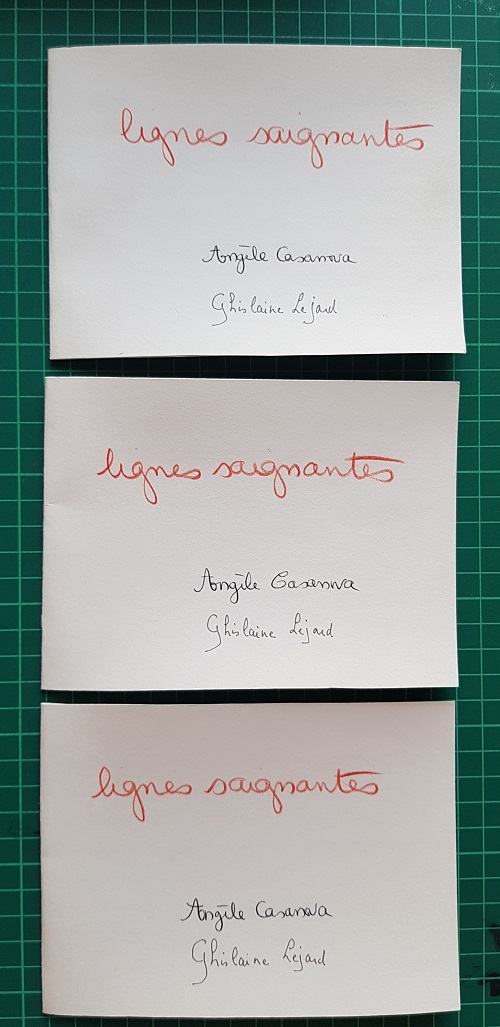 lignes saignantes
Angèle Casanova
Ghislaine Lejard
lignes saignantes
Angèle Casanova
Ghislaine Lejard
lignes saignantes
Angèle Casanova
Ghislaine Lejard